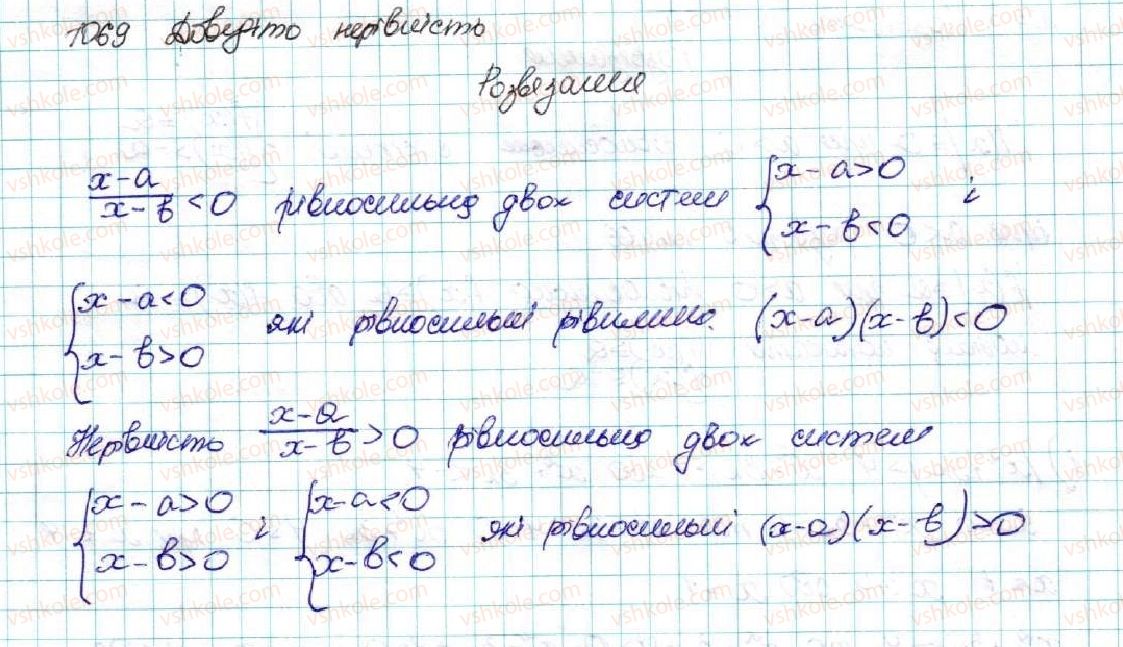 1069 Доведіть нерівність
Розвязання
x-a/x-b < 0 рівносильно двох систем { x-a>0 x-b<0 і
{ x-a<0 x-b>0 які рівносильні (x-a)(x-b)<0
Нерівність x-a/x-b > 0 рівносильно двох систем
{ x-a>0 x-b>0 і { x-a<0 x-b<0 які рівносильні (x-a)(x-b)>0